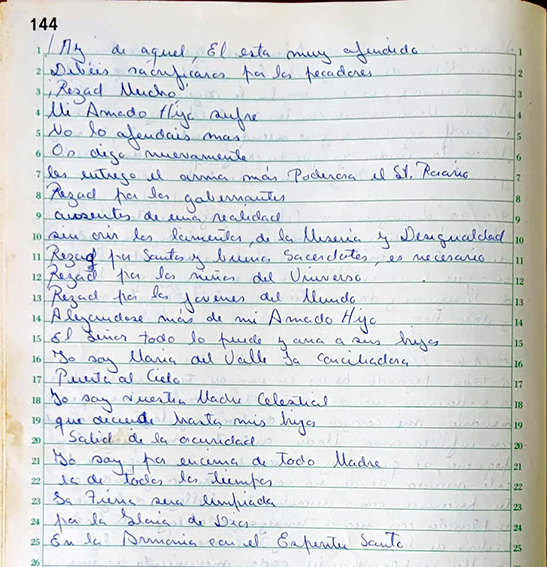 144
1 ¡Ay de aquel, El esta muy ofendido 1
2 Debéis sacrificaros por los pecadores 2
3 ¡Rezad Mucho! 3
4 Mi Amado Hijo sufre 4
5 No lo ofendais mas 5
6 Os digo nuevamente 6
7 les entrego el arma más Poderosa el St. Rosario 7
8 Rezad por los gobernantes 8
9 ausentes de una realidad 9
10 sin oir los lamentos, de la Miseria y Desigualdad 10
11 Rezad por Santos y buenos Sacerdotes, es necesario 11
12 Rezad por los niños del Universo 12
13 Rezad por los jovenes del Mundo 13
14 Alejandose más de mi Amado Hijo 14
15 El Señor todo lo puede y ama a sus hijos 15
16 Yo soy Maria del Valle La Conciliadora 16
17 Puerta al Cielo 17
18 Yo soy vuestra Madre Celestial 18
19 que deciende hasta mis hijos 19
20 Salid de la oscuridad 20
21 Yo soy por encima de Todo Madre 21
22 la de todos los tiempos 22
23 La Tierra sera limpiada 23
24 por la Gloria de Dios 24
25 En la Armonia con el Espiritu Santo 25
26 26